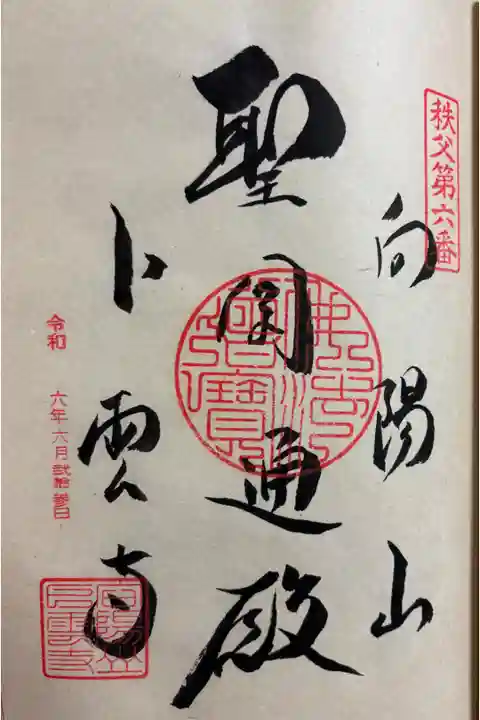 秩父第六番
向陽山
聖円通殿
卜雲寺
令和 六年六月弐拾参日